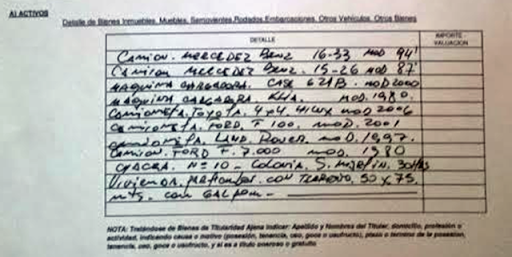 A) ACTIVOS
Detalle de Bienes Inmuebles, Muebles, Semovientes, Rodados, Embarcaciones, Otros Vehículos, Otros Bienes
DETALLE IMPORTE VALUACION
CAMION. MERCEDEZ BENZ 16-33 MOD 94'
CAMION MERCEDEZ BENZ. 15-26 MOD 87'
MAQUINA CARGADORA. CASE 621B. MOD 2000
MAQUINA CARGADORA. MOD. 1980.
CAMIONETA. TOYOTA. 4x4. HILUX MOD 2006
CAMIONETA. FORD. F 100. MOD. 2001
CAMIONETA. LAND ROVER. MOD. 1997.
CAMION. FORD F. 7.000 MOD. 1980
CHACRA. Nº 10 - COLONIA. S. 30HAS
VIVIENDA. CON TERRENO. 50 x 75.
MTS. CON GALPON. -
NOTA: Tratándose de Bienes de Titularidad Ajena indicar: Apellido y Nombres del Titular, domicilio, profesión o
actividad, indicando causa o motivo (posesión, tenencia, uso, goce o usufructo), plazo o término de la posesión,
tenencia, uso, goce o usufructo, y si es a título oneroso o gratuito